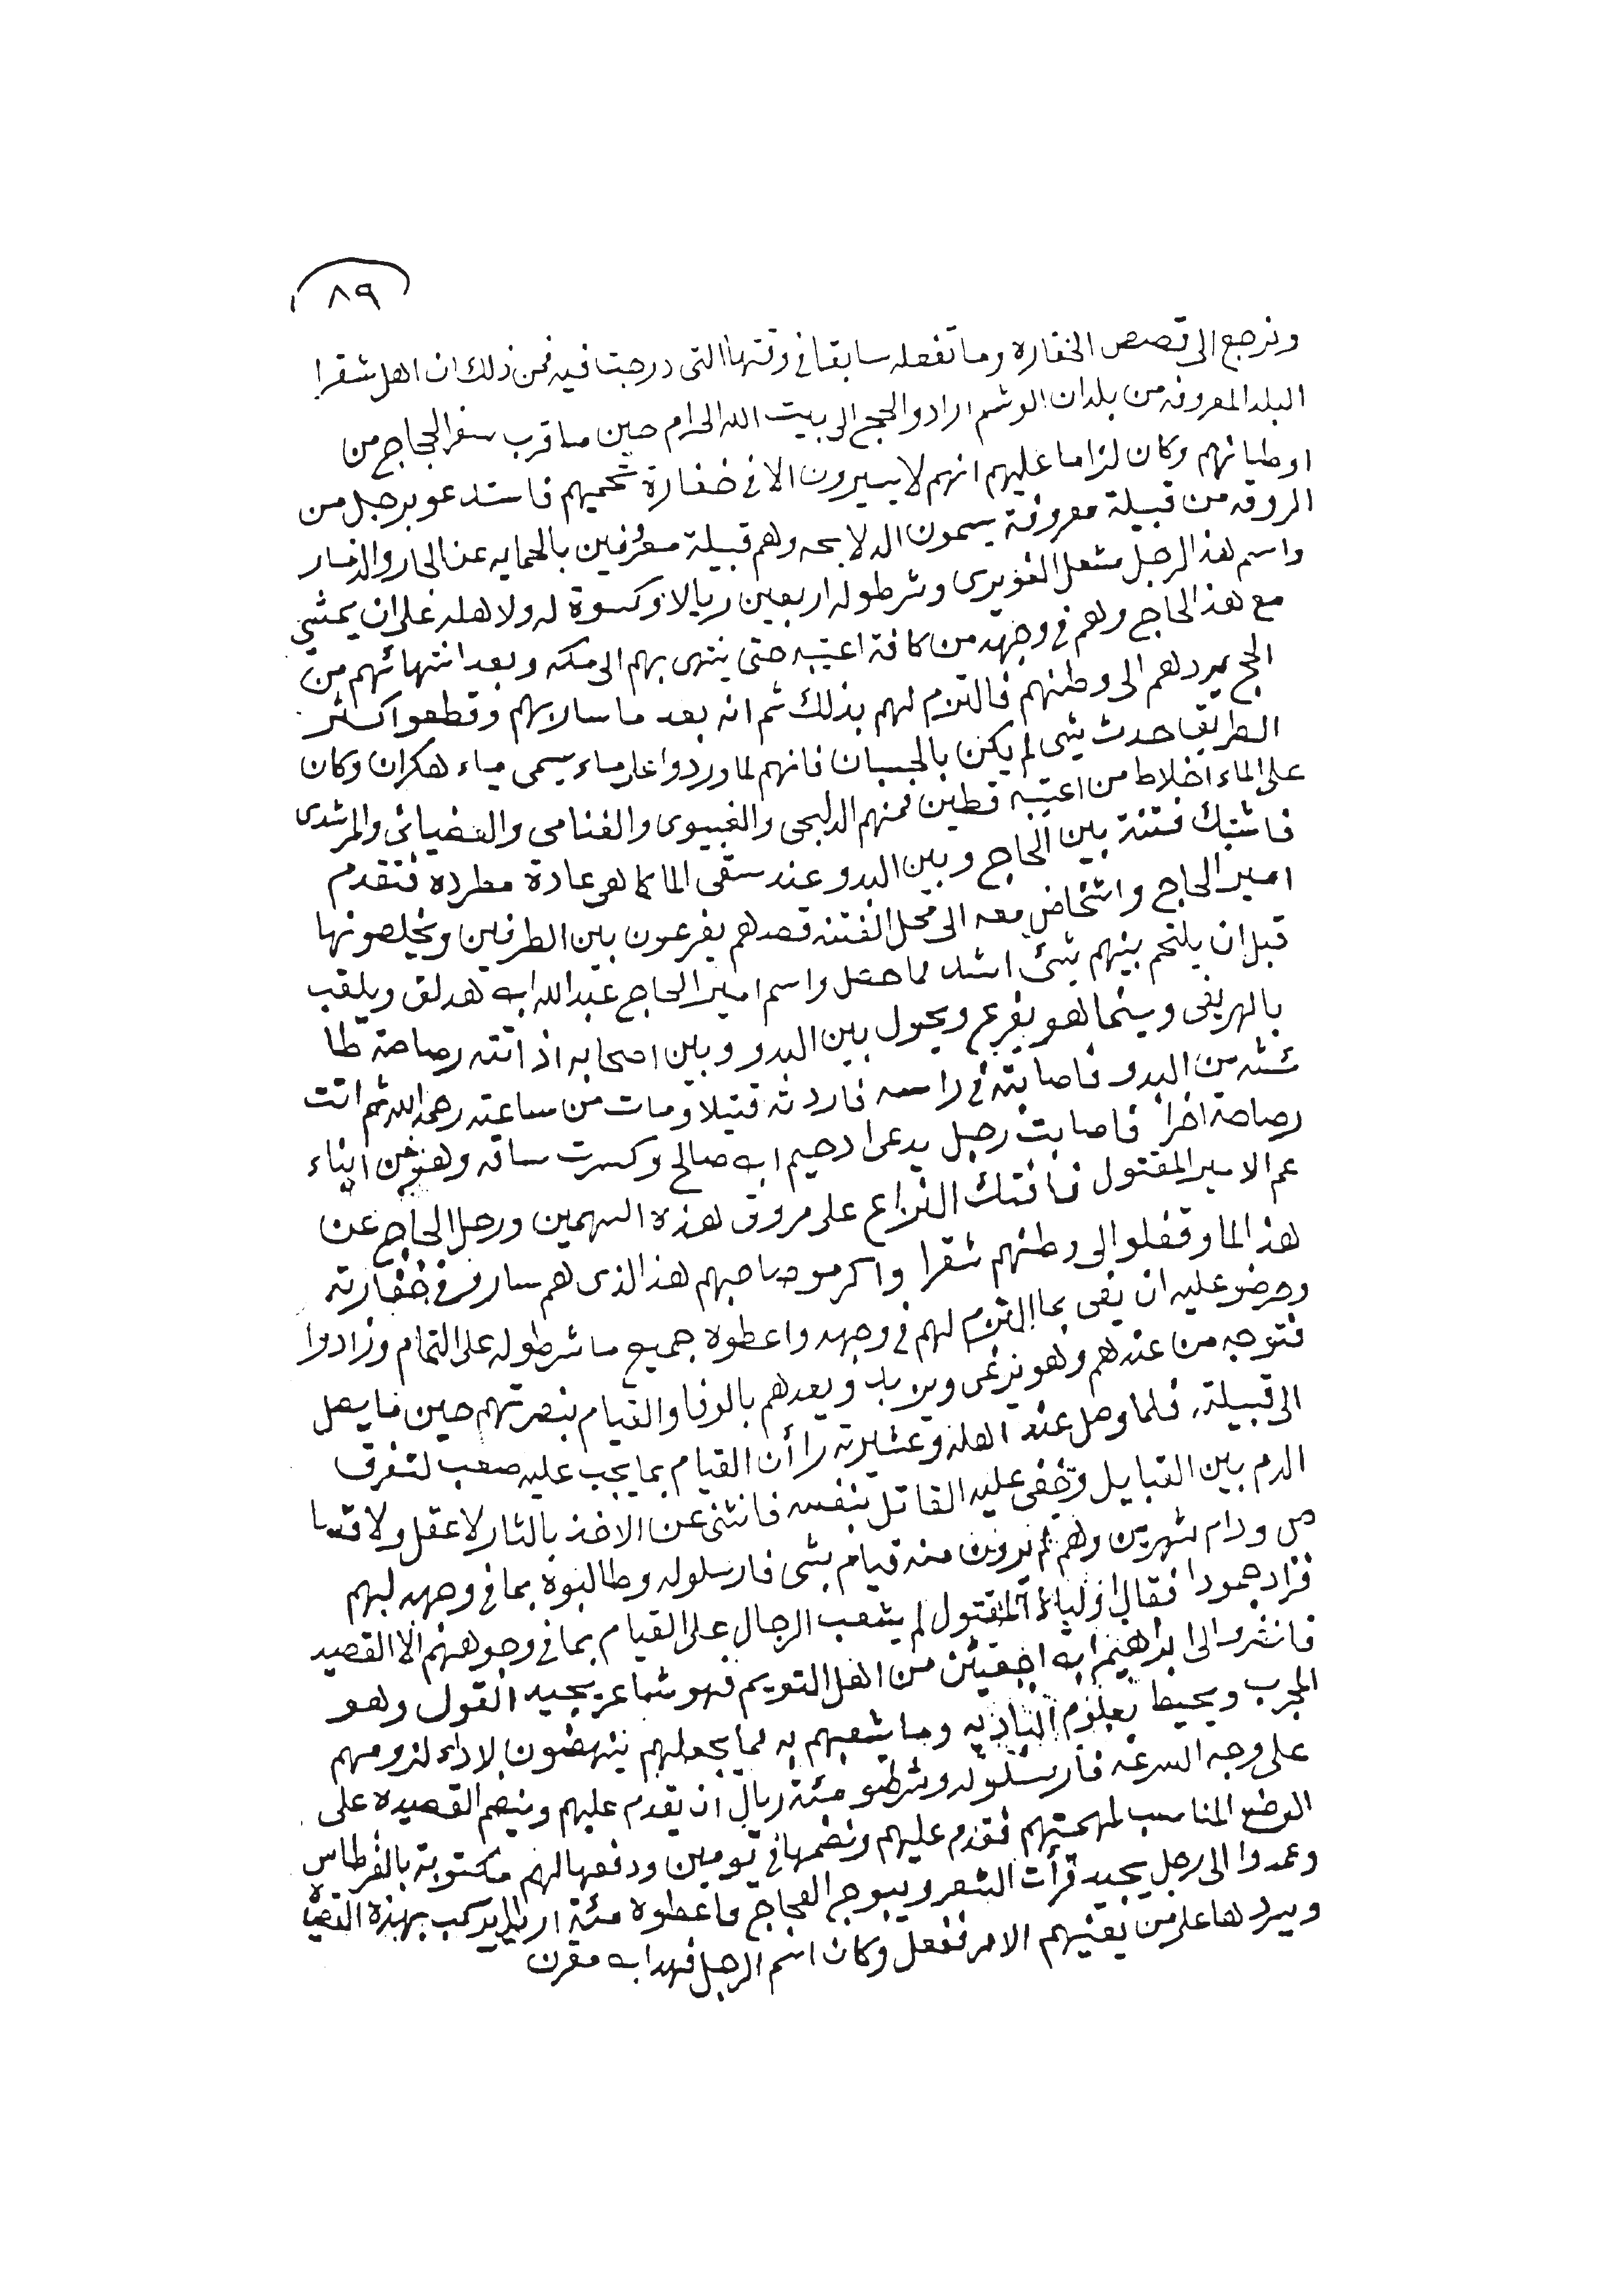 ٨٩
ونرجع الى قصص الخفاره وما تفعله سابقا في وقتها التى درجتا فيه فمن ذلك ان اهل شقرا
البلد المعروفه من بلدان الوشم ارادو الحج الى بيت الله الحرام حين ما قرب سفر الحجاج من
اوطانهم وكان لزاما عليهم انهم لا يسيرون الا في خفارة تحميهم فاستدعو برجل من
الروقه من قبيلة معروفة يسمون الدلابحه وهم قبيلة معرفين بالحمايه عن الجار والذمار
واسم هذ الرجل مشعل الغويرى وشرطوله اربعين ريالا وكسوة له ولاهله على ان يمشي
مع هذ الحاج وهم في وجهه من كافة اعتيبه حتى ينتهى بهم الى مكه وبعد انتهائهم من
الحج يردهم الى وطنهم فالتزم لهم بذلك ثم انه بعد ما سار بهم وقطعوا كثر
الطريق حدث شى لم يكن بالحسبان فانهم لما وردوا على مياء يسمى مياء هكران وكان
على الماء اخلاط من اعتيبه قطين فمنهم الدلبحى والغبيوى والغنامى والعضيانى والمرشدى
فاشتبك فتنة بين الحاج وبين البدو عند سقى الما كما هى عادة مطرده فتقدم
امير الحاج واشخاص معه الى محل الفتنه قصدهم يفرعون بين الطرفين ويخلصونها
قبل ان يلتحم بينهم شئ اشد مما حصل واسم امير الحاج عبد الله ابن هدلق ويلقب
بالهريفى وبينما هو يفرع ويحول بين البدو وبين اصحابه اذ اتته رصاصة طا
ئشه من البدو فاصابته في راسه فاردته قتيلا ومات من ساعته رحمه الله ثم اتت
رصاصة اخرا فاصابت رجل يدعى ادحيم ابن صالح وكسرت ساقه وهو من ابناء
عم الامير المقتول فافتك النزاع على مروق هذه السهمين ورحل الحاج عن
هذ الما وقفلو الى وطنهم شقرا واكرمو صاحبهم هذ الذى هم سارو في خفارته
وحرضو عليه ان يفى بما التزم لهم في وجهه واعطوه جميع ما شرطوله على التمام وزادوا
فتوجه من عندهم وهو يرغى ويزبد ويعدهم بالوفا والقيام بنصرتهم حين ما يصل
الى قبيلته. فلما وصل عند اهله وعشيرته رأ أن القيام بما يجب عليه صعب لتفرق
الدم بين القبايل وتخفى عليه القاتل بنفسه فانثنى عن الاخذ بالثار لا عقل ولا قصا
ص ودام شهرين وهم لم يرون منه قيام بشى فارسلوله وطالبوه بما في وجهه لهم
فزاد جمودا فقال اولياء المقتول لم يشعب الرجال على القيام بما في وجوههم الا القصيد
فانثرو الى ابراهيم ابن اجعيثن من اهل التويم فهو شاعر يجيد القول وهو
المجرب ويحيط بعلوم الباديه وما يشعبهم به مما يجعلهم ينتهضون لاداء لزومهم
على وجه السرعه فارسلوله وشرطو مئة ريال ان يقدم عليهم وينضم القصيده على
الوضع المناسب لمهمتهم فقدم عليهم ونضمها في يومين ودفعها لهم مكتوبة بالقرطاس
وعمدوا الى رجل يجيد قرأت الشعر ويبوج الفجاج فاعطوه مئة اريال يركب بهذه القصيده
ويردها على من يعنيهم الامر ففعل وكان اسم الرجل فهد ابن مقرن